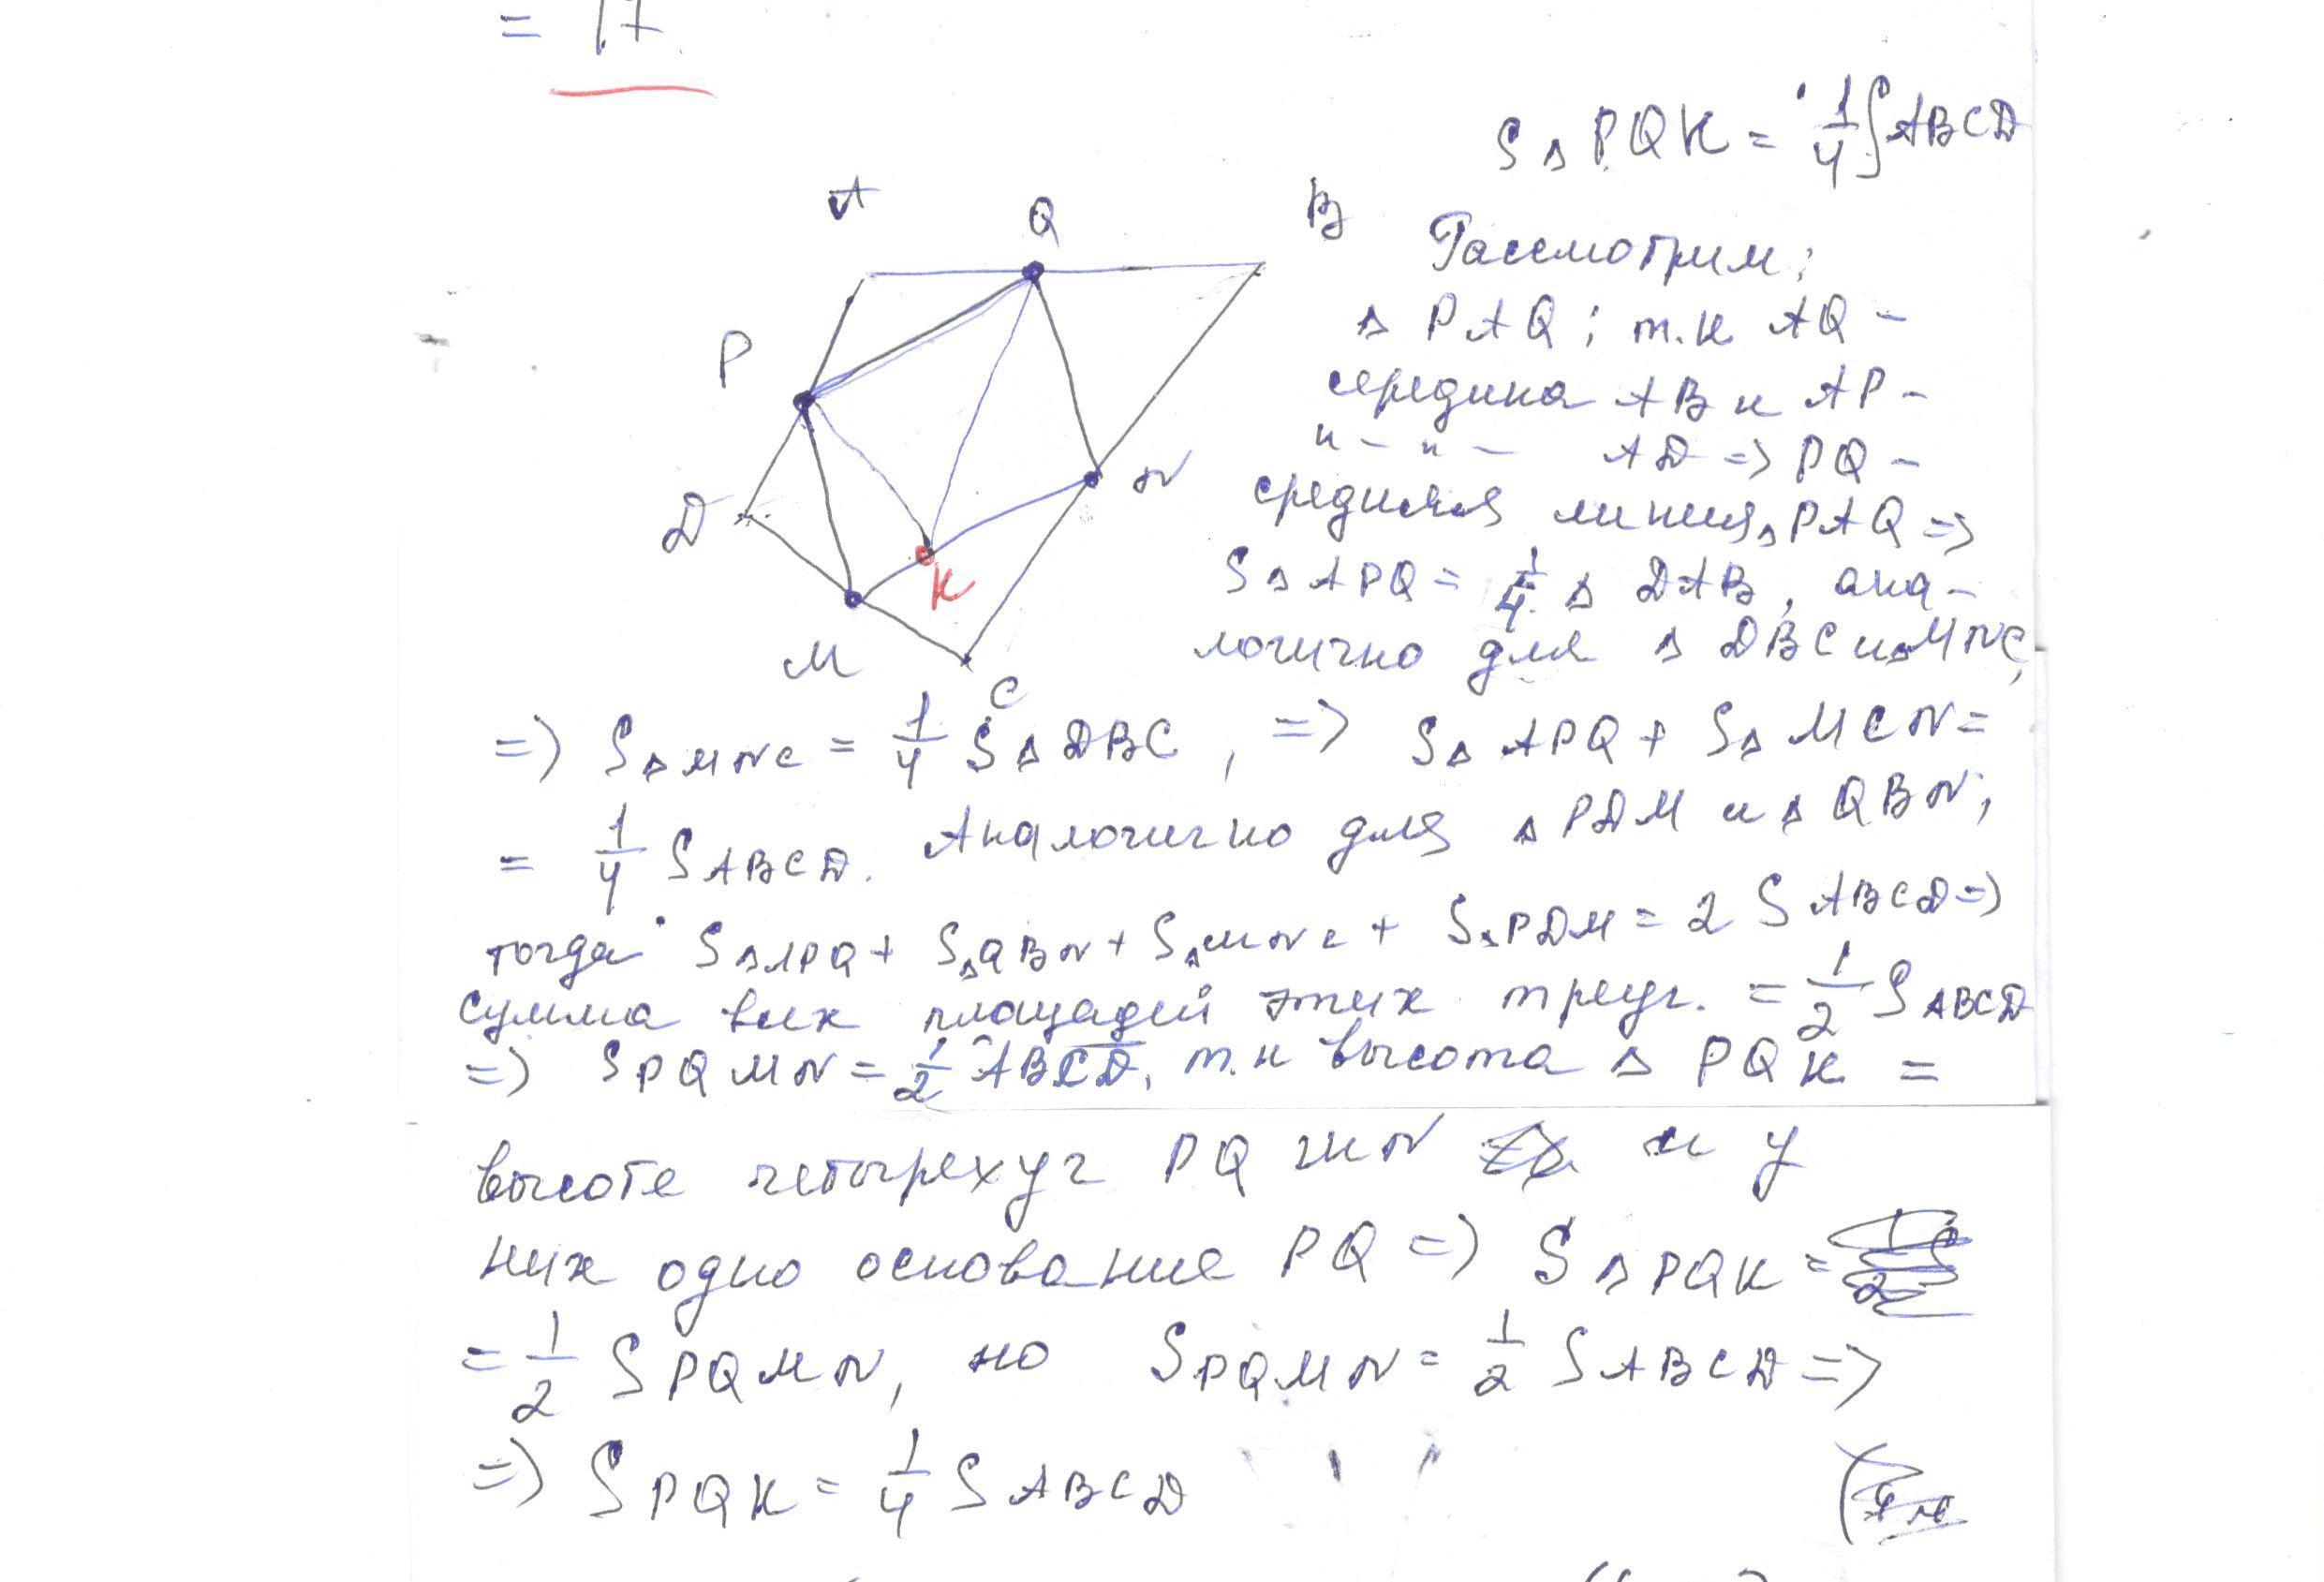 = 17
S △ PQK = 1/4 S ABCD
A
Q
B
P
D
N
K
M
C
Рассмотрим:
△ PAQ; т.к AQ –
середина AB и AP –
" – " – AD => PQ –
средняя линия △ PAQ =>
S △ APQ = 1/4 △ DAB, ана-
логично для △ DBC и △ MNC,
=> S △ MNC = 1/4 S △ DBC, => S △ APQ + S △ MCN =
= 1/4 S ABCD. Аналогично для △ PDM и △ QBN;
тогда S △ APQ + S △ QBN + S △ MNC + S △ PDM = 2 S ABCD =>
сумма всех площадей этих треуг. = 1/2 S ABCD
=> S PQMN = 1/2 ABCD, т.к высота △ PQK =
высоте четырехуг PQMN и у
них одно основание PQ => S △ PQK =
= 1/2 S PQMN, но S PQMN = 1/2 S ABCD =>
=> S PQK = 1/4 S ABCD